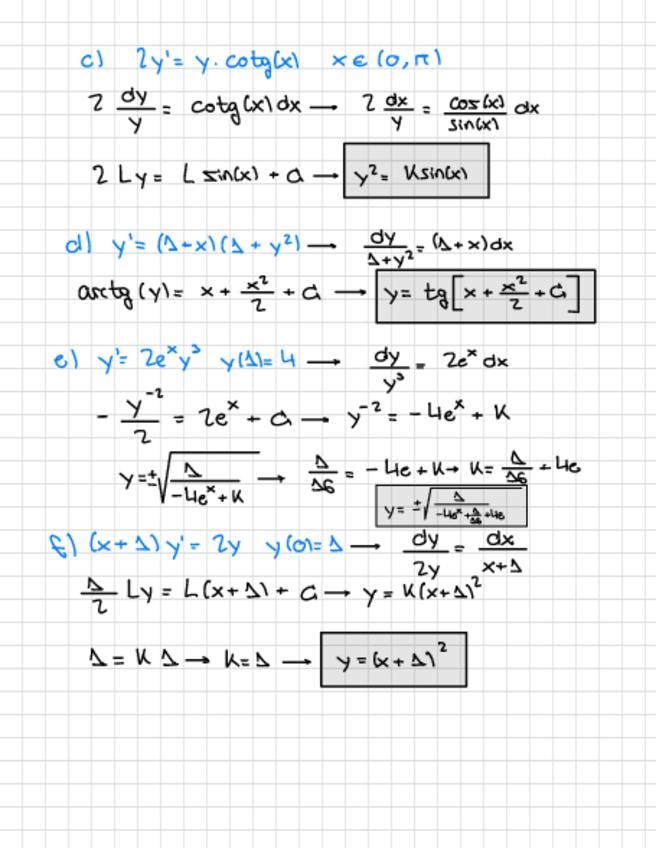 c) 2y' = y · cotg(x) x ∈ (0, π)
2 dy/y = cotg(x) dx → 2 dx/y = cos(x)/sin(x) dx
2 Ly = L sin(x) + C → y² = K sin(x)
d) y' = (1+x)(1+y²) → dy/1+y² = (1+x) dx
arctg(y) = x + x²/2 + C → y = tg[x + x²/2 + C]
e) y' = 2eˣy³ y(1) = 4 → dy/y³ = 2eˣ dx
- y⁻²/2 = 2eˣ + C → y⁻² = -4eˣ + K
y = ±√(1/-4eˣ + K) → 1/16 = -4e + K → K = 1/16 + 4e
y = ±√(1/-4eˣ + 1/16 + 4e)
f) (x+1) y' = 2y y(0) = 1 → dy/2y = dx/x+1
1/2 Ly = L(x+1) + C → y = K(x+1)²
1 = K 1 → K = 1 → y = (x+1)²